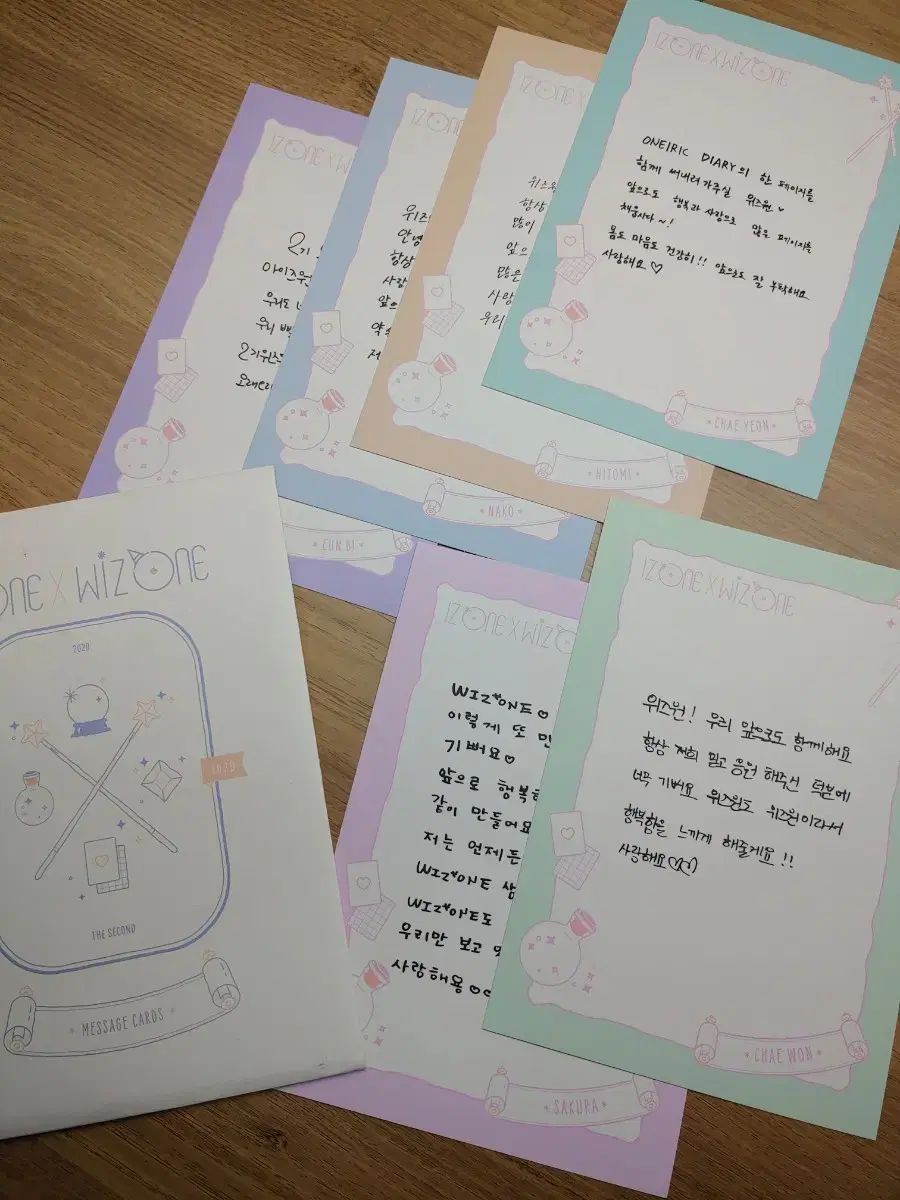 IZONE X WIZ
아이즈원
우리도
우리
2기위즈
오래오래
EUN BI
IZONE
위즈
안녕
항상
사랑
앞으
약속
저
NAKO
IZONE X
위즈원
항상
많이
앞으
많은
사랑
우리
HITOMI
IZONE X WIZONE
ONEIRIC DIARY의 한 페이지를
함께 써내려가주실 위즈원♥
앞으로도 행복과 사랑으로 많은 페이지를
채웁시다~!
몸도 마음도 건강히!! 앞으로도 잘 부탁해요
사랑해요♡
CHAE YEON
ONE X WIZONE
2020
2020
THE SECOND
MESSAGE CARDS
IZONE X WIZO
WIZ*ONE♡
이렇게 또 만
기뻐요♡
앞으로 행복한
같이 만들어요
저는 언제든
WIZ*ONE
WIZ*ONE도
우리만 보고
사랑해용♡♡
SAKURA
IZONE X WIZONE
위즈원! 우리 앞으로도 함께해요
항상 저희 믿고 응원 해주신 덕분에
너무 기뻐요 위즈원도 위즈원이라서
행복함을 느끼게 해줄게요!!
사랑해요
CHAE WON